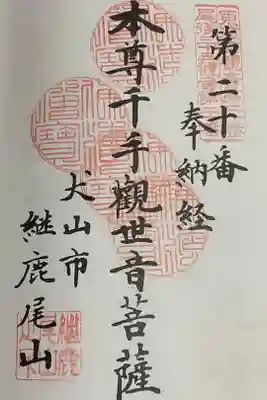 第二十番
奉納経
本尊千手觀世音菩薩
犬山市
継鹿尾山